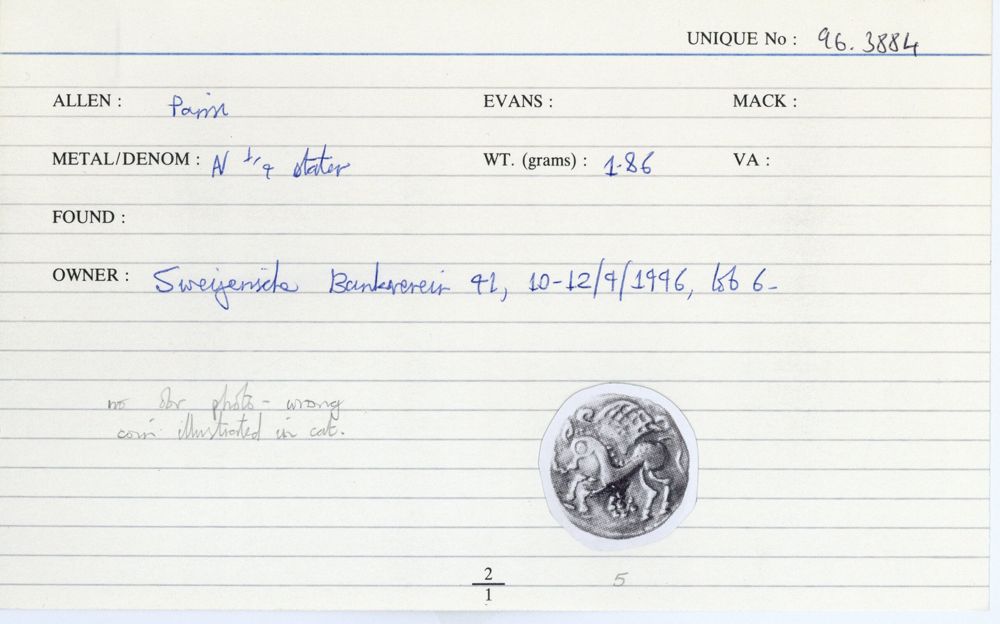 UNIQUE No : 96.3884
ALLEN : Parisii EVANS : MACK :
METAL/DENOM : AV 1/4 stater WT. (grams) : 1.86 VA :
FOUND :
OWNER : Sweizerische Bankverein 41, 10-12/9/1996, lot 6-
no obv photo - wrong
coin illustrated in cat.
2
1
5